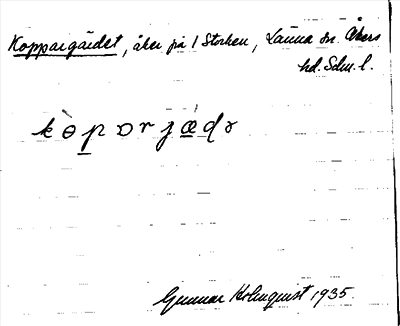 Koppargärdet, åker på 1 Storken, Länna sn. Åkers
hd. Sdm. l.
kòparjæ̀dɘ
Gunnar Holmquist 1935.